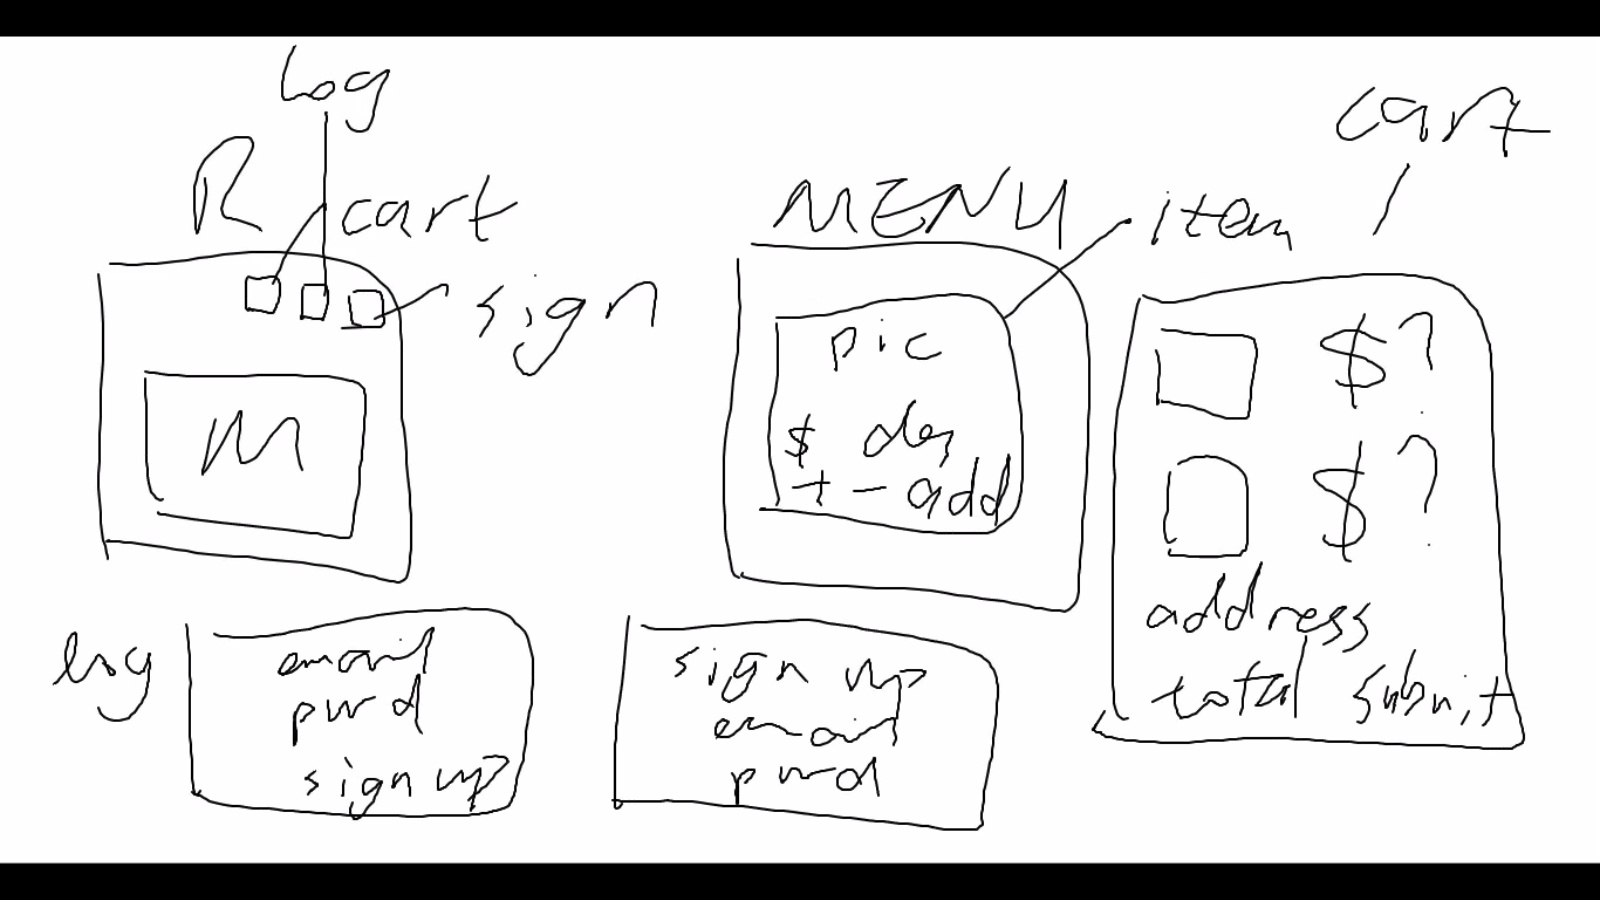 Log
R
cart
sign
M
MENU
item
pic
$ des
+ - add
cart
$?
$?
address
total submit
log
email
pwd
sign up
sign up
email
pwd